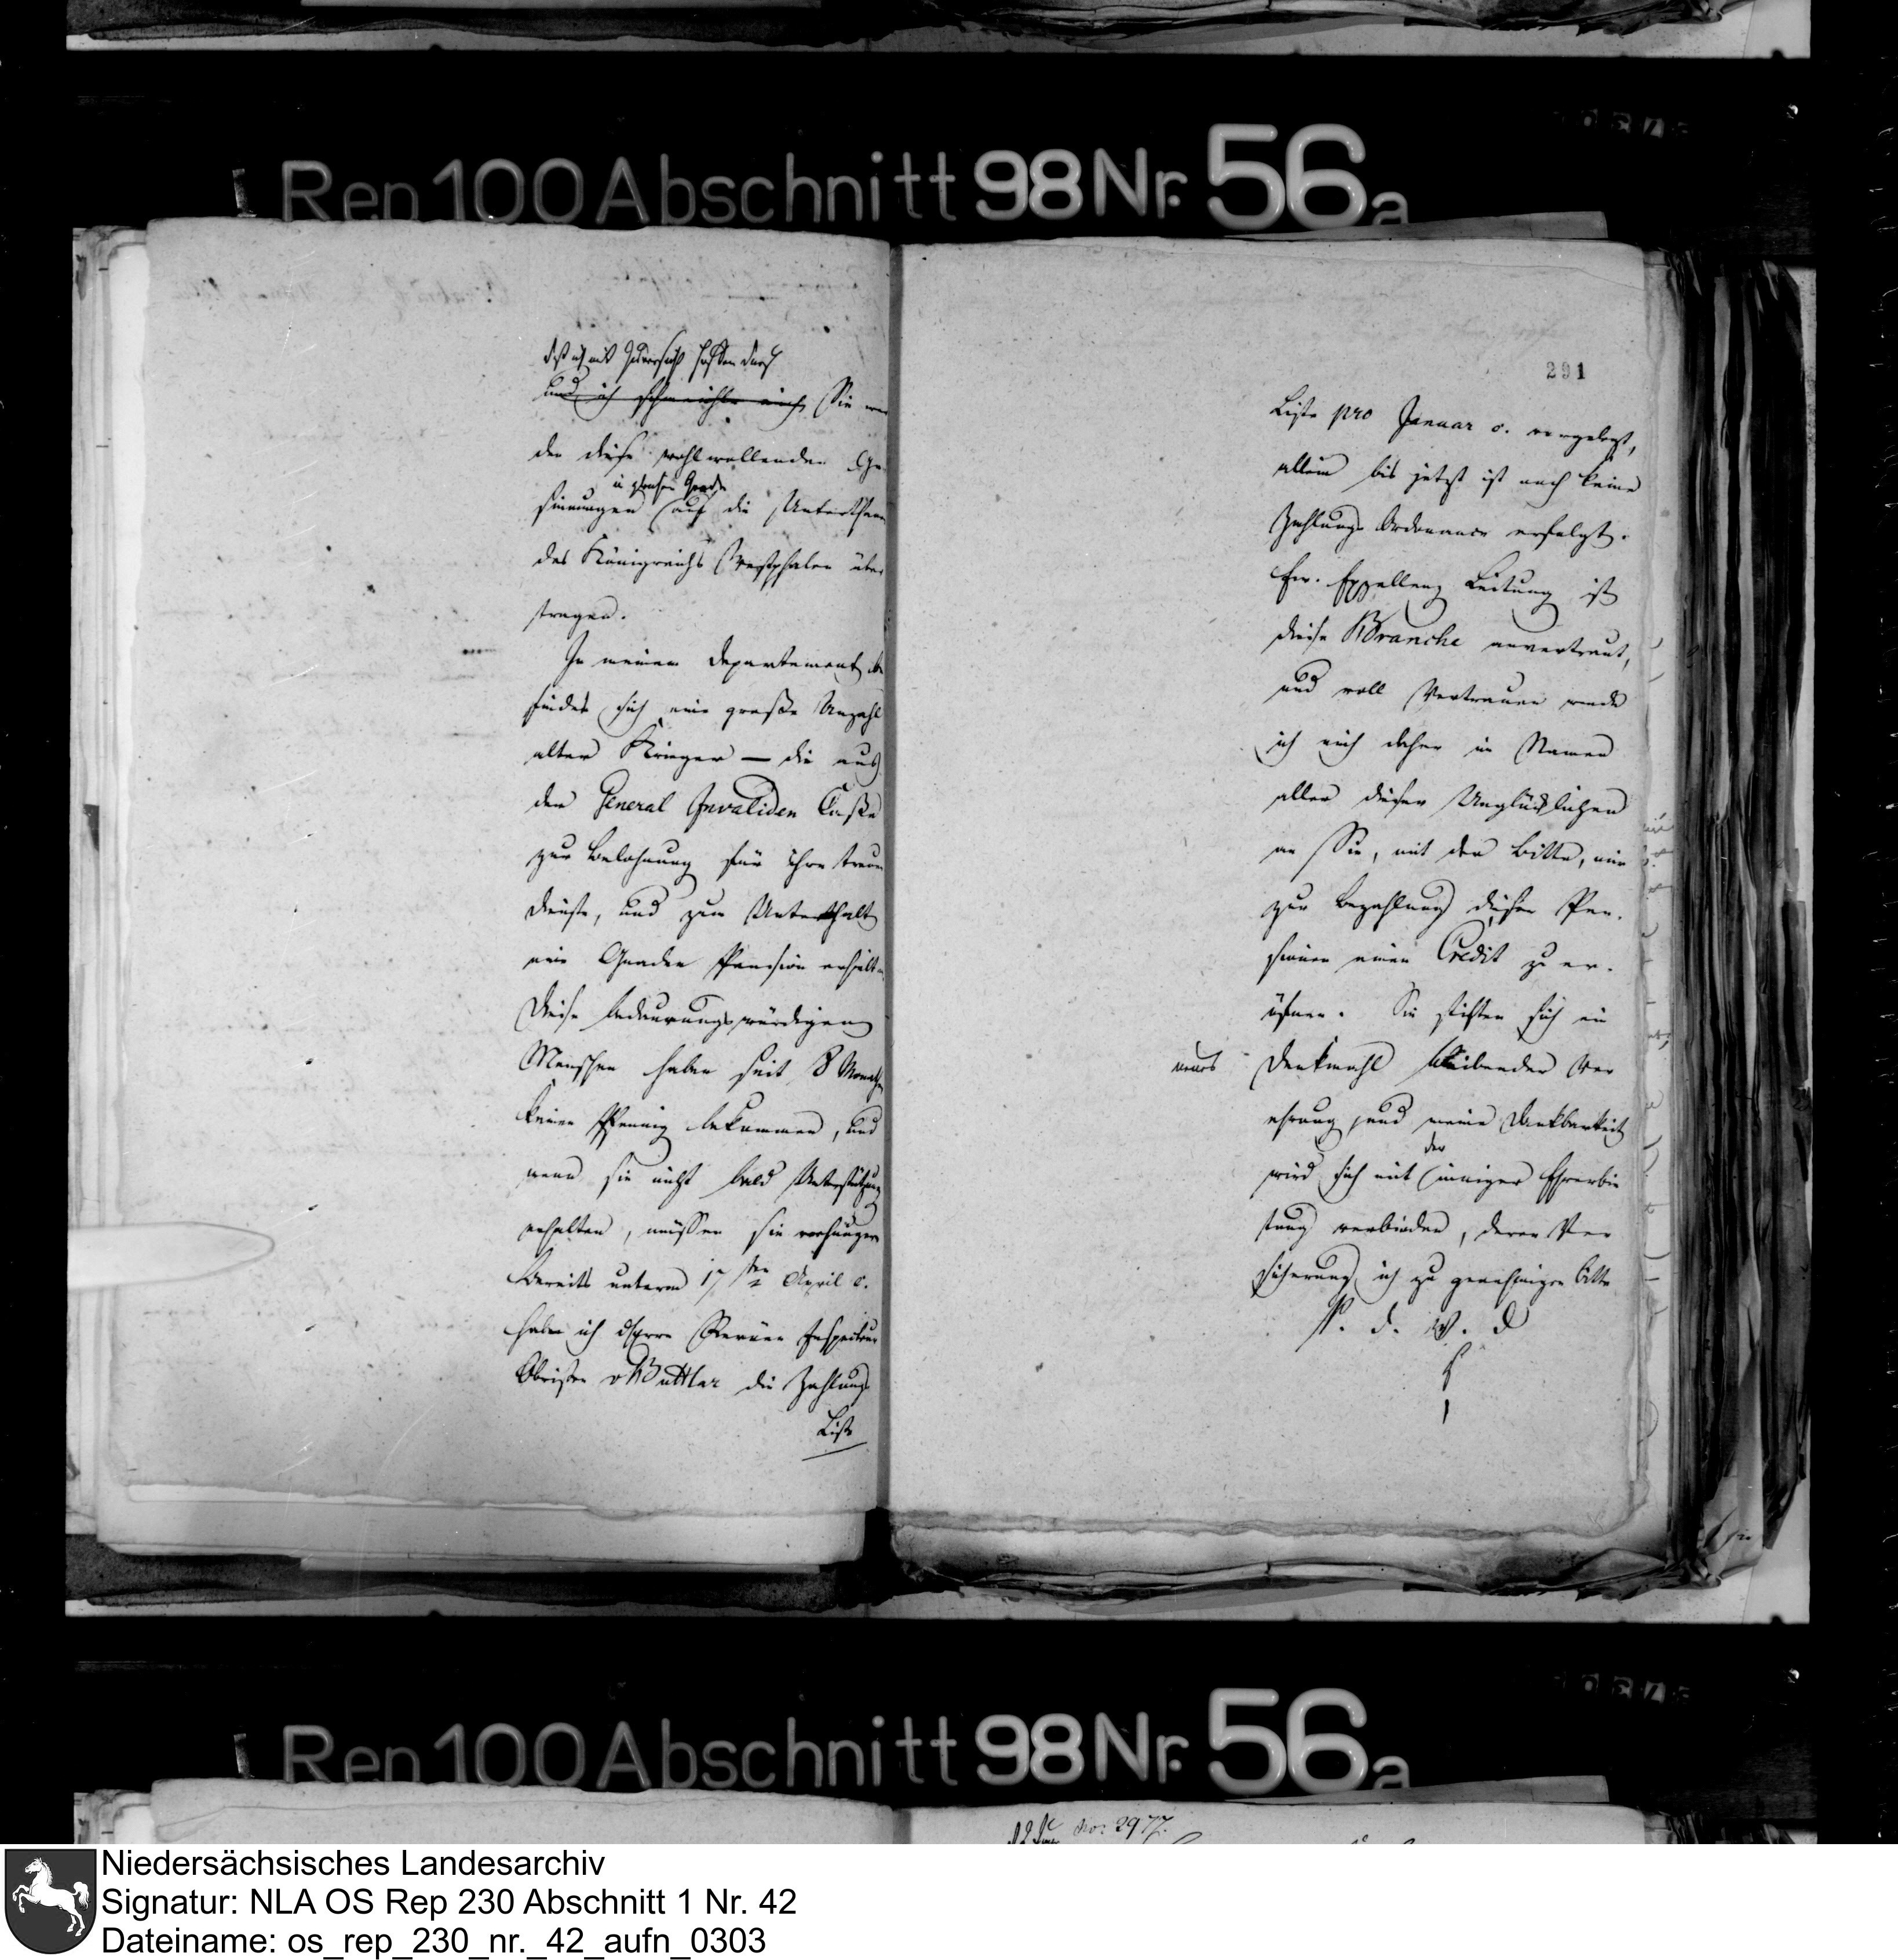 Rep 100 Abschnitt 98 Nr. 56a
daß ich mit Zuversicht hoffen darf
und ich schmeichle mich, Sie wer
den diese wohlwollenden Ge
in gleichem Grade
sinnungen auf die Unterthanen
des Königreichs Westphalen über
tragen.
In meinem Departement be
findet sich eine große Anzahl
alter Krieger — die aus
der General Invaliden Casse
zur Belohnung für ihre treuen
Dienste, und zum Unterhalt
eine Gnaden Pension erhielten
Diese bedaurungswürdigen
Menschen haben seit 8 Monathen
keinen Pfennig bekommen, und
wenn sie nicht bald Unterstützung
erhalten, müssen sie verhungern
Bereits unterm 17ten April c.
habe ich dem Herrn Revüen Inspecteur
Obristen v Buttlar die Zahlungs
Liste
291
Liste pro Januar c. vorgelegt,
allein bis jetzt ist noch keine
Zahlungs Ordonance erfolgt.
Ew. Excellenz Leitung ist
diese Branche anvertraut,
und voll Vertrauen wende
ich mich daher im Namen
aller dieser Unglücklichen
an Sie, mit der Bitte, mir
zur Bezahlung dieser Pen-
sionen einen Credit zu er-
öfnen. Sie stiften sich ein
neues Denkmahl bleibender Ver
ehrung, und meine Dankbarkeit
der
wird sich mit inniger Ehrerbie
tung verbinden, deren Ver
sicherung ich zu genehmigen bitte
P. d. W. D
Rep 100 Abschnitt 98 Nr. 56a
No: 2977.
Niedersächsisches Landesarchiv
Signatur: NLA OS Rep 230 Abschnitt 1 Nr. 42
Dateiname: os_rep_230_nr._42_aufn_0303